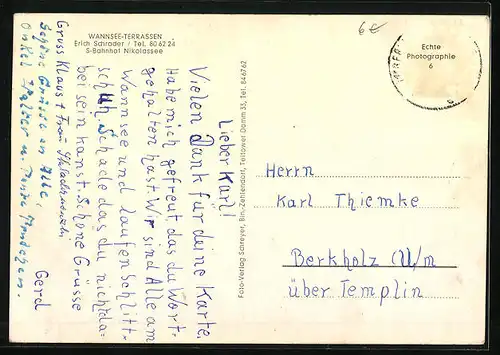 WANNSEE-TERRASSEN
Erich Schrader / Tel. 80 62 24
S-Bahnhof Nikolassee
6€
Echte
Photographie
6
Lieber Karl!
Vielen Dank für deine Karte.
Habe mich gefreut das du Wort-
gehalten hast. Wir sind Alle am
Wannsee und laufen Schlitt-
schuh. Schade das du nicht da-
bei sein kanst. Schöne Grüsse
Gerd
Gruss Klaus + Frau
Schöne Grüsse an Alle,
Onkel Walter u. Tante
Foto-Verlag Schreyer, Bln.-Zehlendorf, Teltower Damm 35, Tel. 84 67 62
Herrn
Karl Thiemke
Berkholz (U/m
über Templin